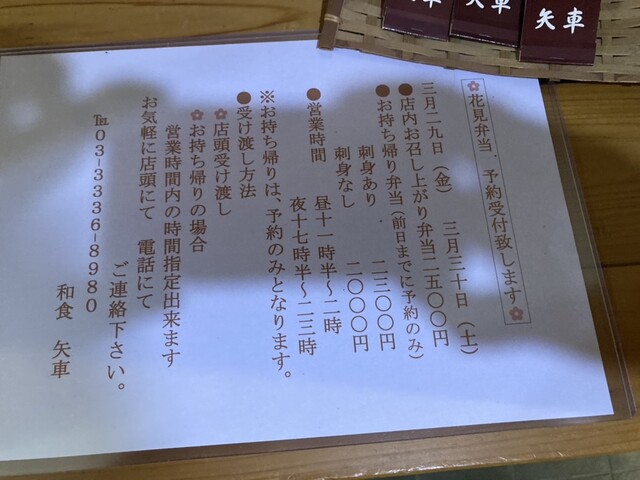 花見弁当、予約受付致します
三月二九日（金） 三月三十日（土）
●店内お召し上がり弁当二五〇〇円
●お持ち帰り弁当（前日までに予約のみ）
刺身あり 二三〇〇円
刺身なし 二〇〇〇円
●営業時間 昼十一時半～二時
夜十七時半～二二時
※お持ち帰りは、予約のみとなります。
●受け渡し方法
店頭受け渡し
お持ち帰りの場合
営業時間内の時間指定出来ます
お気軽に店頭にて 電話にて
ご連絡下さい。
℡03-3336-8980
和食 矢車
矢車
矢車
矢車